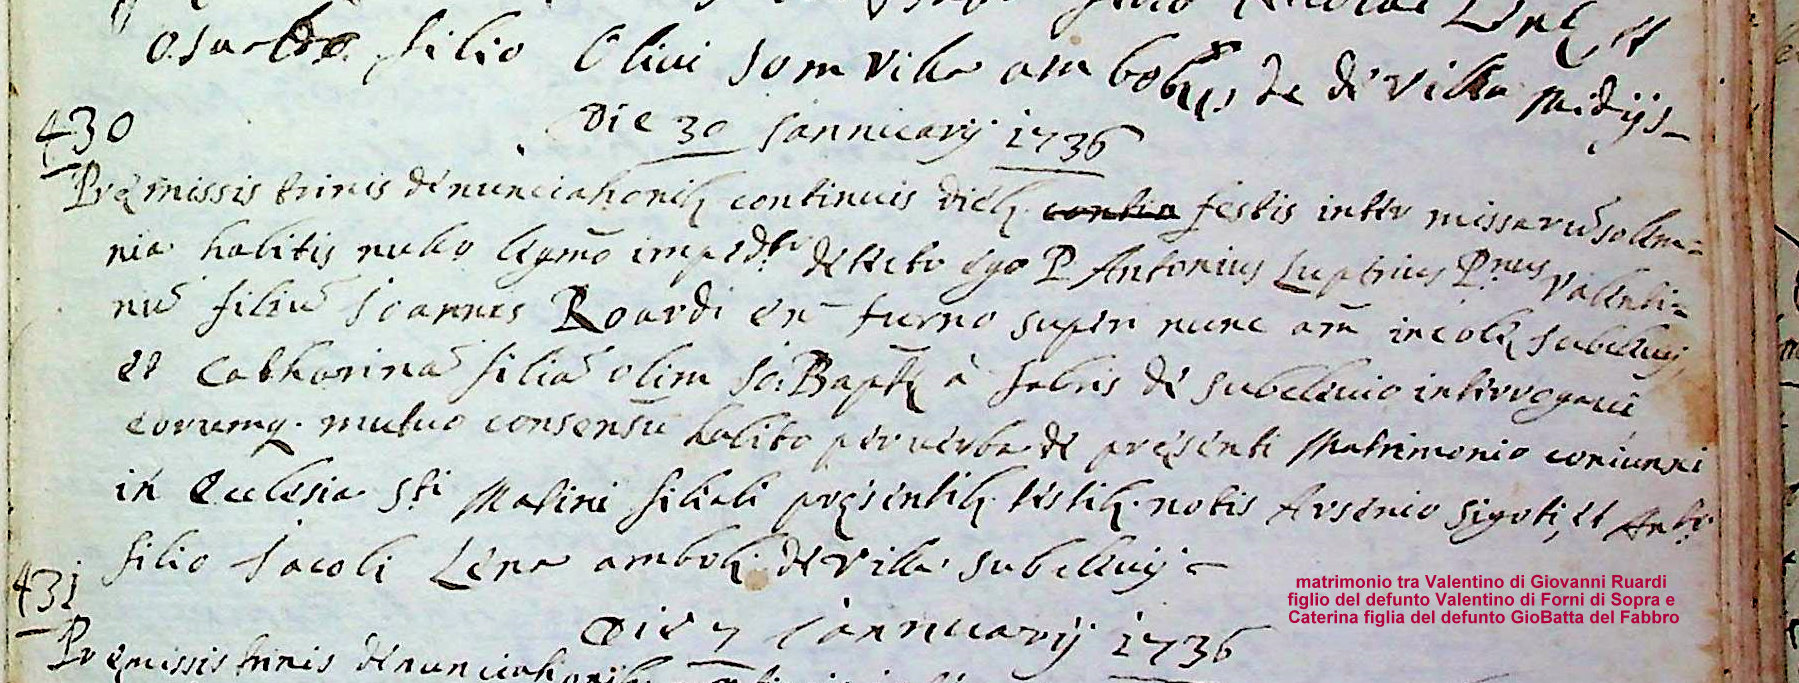 filio Olivi Som Villa ambobus de dê Villa Midijs
430
Die 30 Jannuarij 1736
Premissis trinis denunciationib continuis dieb. contin festis inter missarũ solem=
nia habitis nulloq legmõ impedto detecto ego P. Antonius Luptrius P.nus Valenti=
nũ filiũ Joannes Roardi ex furno super nunc añ incolę Subcluij,
et Catharinã filiã olim Jo: Baptę à Fabris de Subcluio interrogavi
eorumq. mutuo consensũ habito per verba de pręsenti Matrimonio coniunxi
in Ecclesia Sti Matini filiali pręsentib. testib. notis Arsenio Sigoti, et Anto.
filio Jacobi Lena ambob. de Villa Subcluij
431
Die 7 Jannuarij 1736
Premissis trinis denunciationib.
matrimonio tra Valentino di Giovanni Ruardi
figlio del defunto Valentino di Forni di Sopra e
Caterina figlia del defunto GioBatta del Fabbro